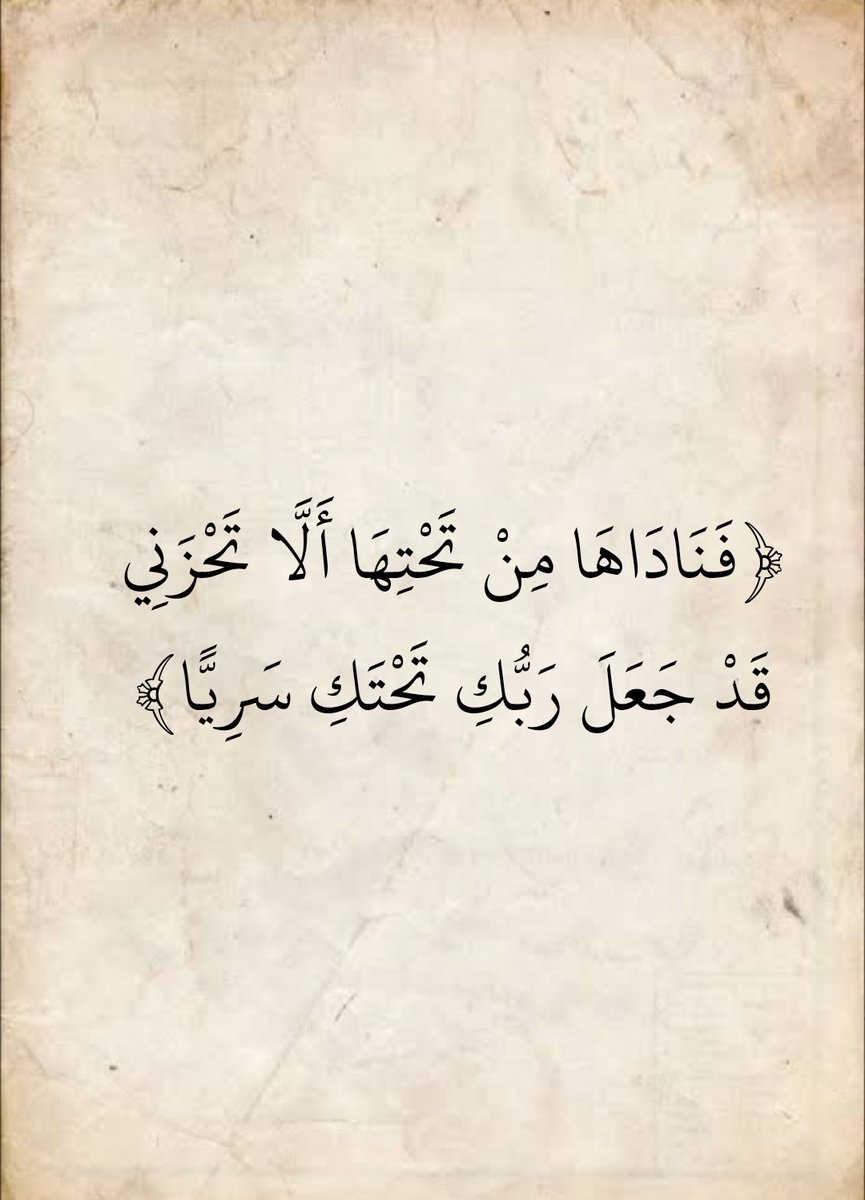 ﴿فَنَادَاهَا مِنْ تَحْتِهَا أَلَّا تَحْزَنِي
قَدْ جَعَلَ رَبُّكِ تَحْتَكِ سَرِيًّا﴾